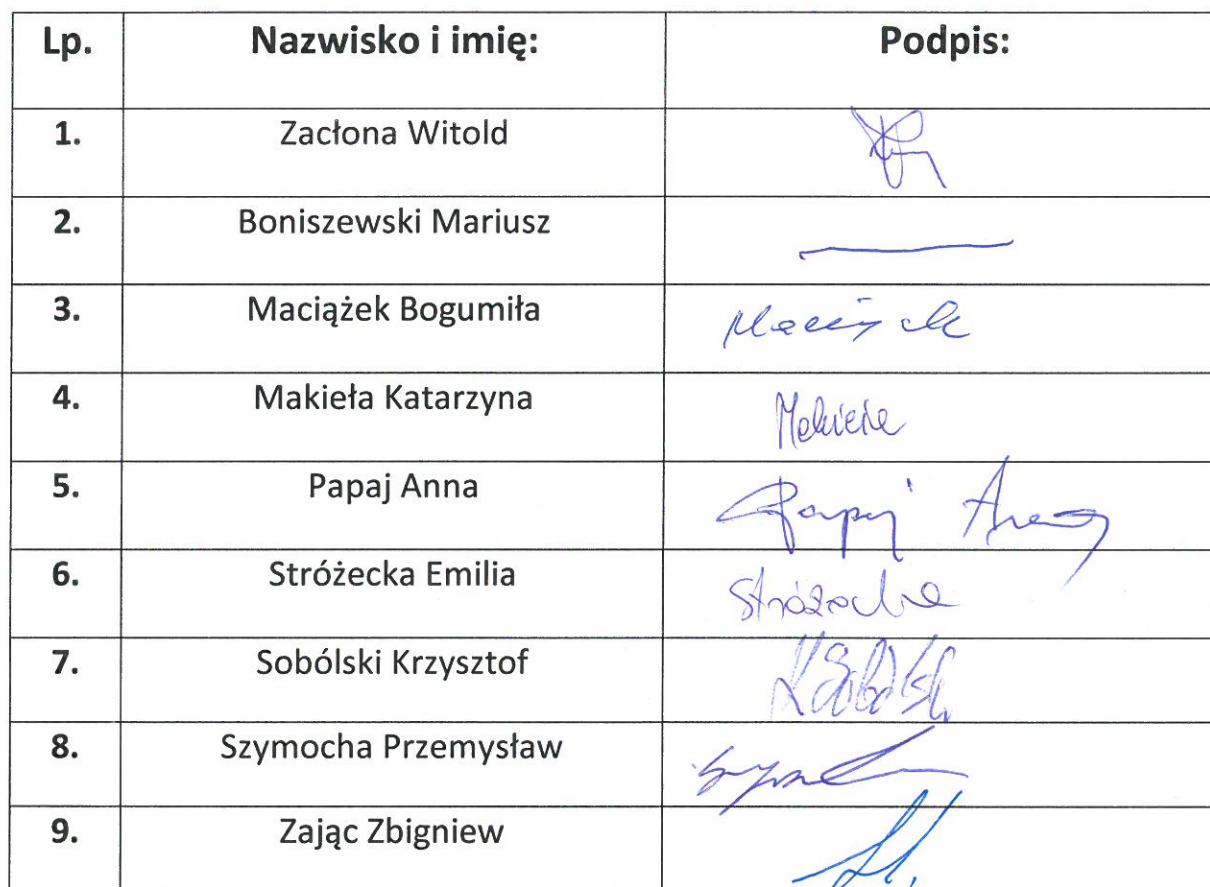 Lp. Nazwisko i imię: Podpis:
1. Zacłona Witold
2. Boniszewski Mariusz
3. Maciążek Bogumiła
4. Makieła Katarzyna
5. Papaj Anna Papaj Anna
6. Stróżecka Emilia
7. Sobólski Krzysztof
8. Szymocha Przemysław
9. Zając Zbigniew